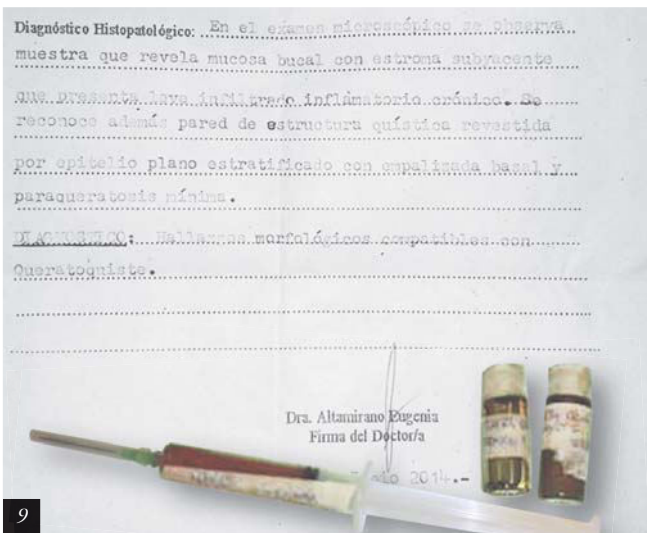 Diagnóstico Histopatológico: En el exámen microscópico se observa
muestra que revela mucosa bucal con estroma subyacente
que presenta laxo infiltrado inflamatorio crónico. Se
reconoce además pared de estructura quística revestida
por epitelio plano estratificado con empalizada basal y
paraqueratosis mínima.
DIAGNOSTICO: Hallazgos morfológicos compatibles con
Queratoquiste.
Dra. Altamirano Eugenia
Firma del Doctor/a
2014.-
9